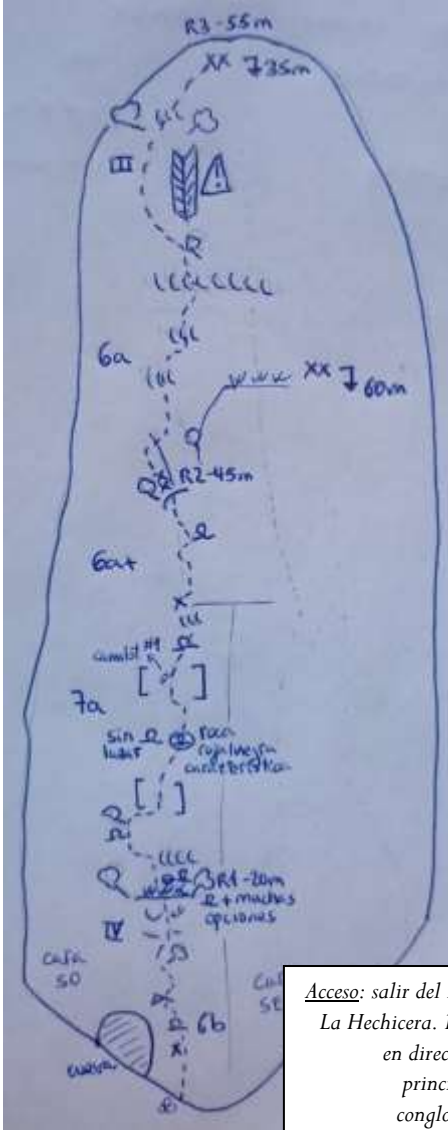 R3-55m
XX 35m
III
6a
XX
60m
R2-45m
6a+
x
7a
sin
roca
roja/negra
característica
R1-20m
+ muchas
opciones
IV
cara
SO
6b
x
cueva
Acceso: salir del
La Hechicera.
en direc
princ
conglo